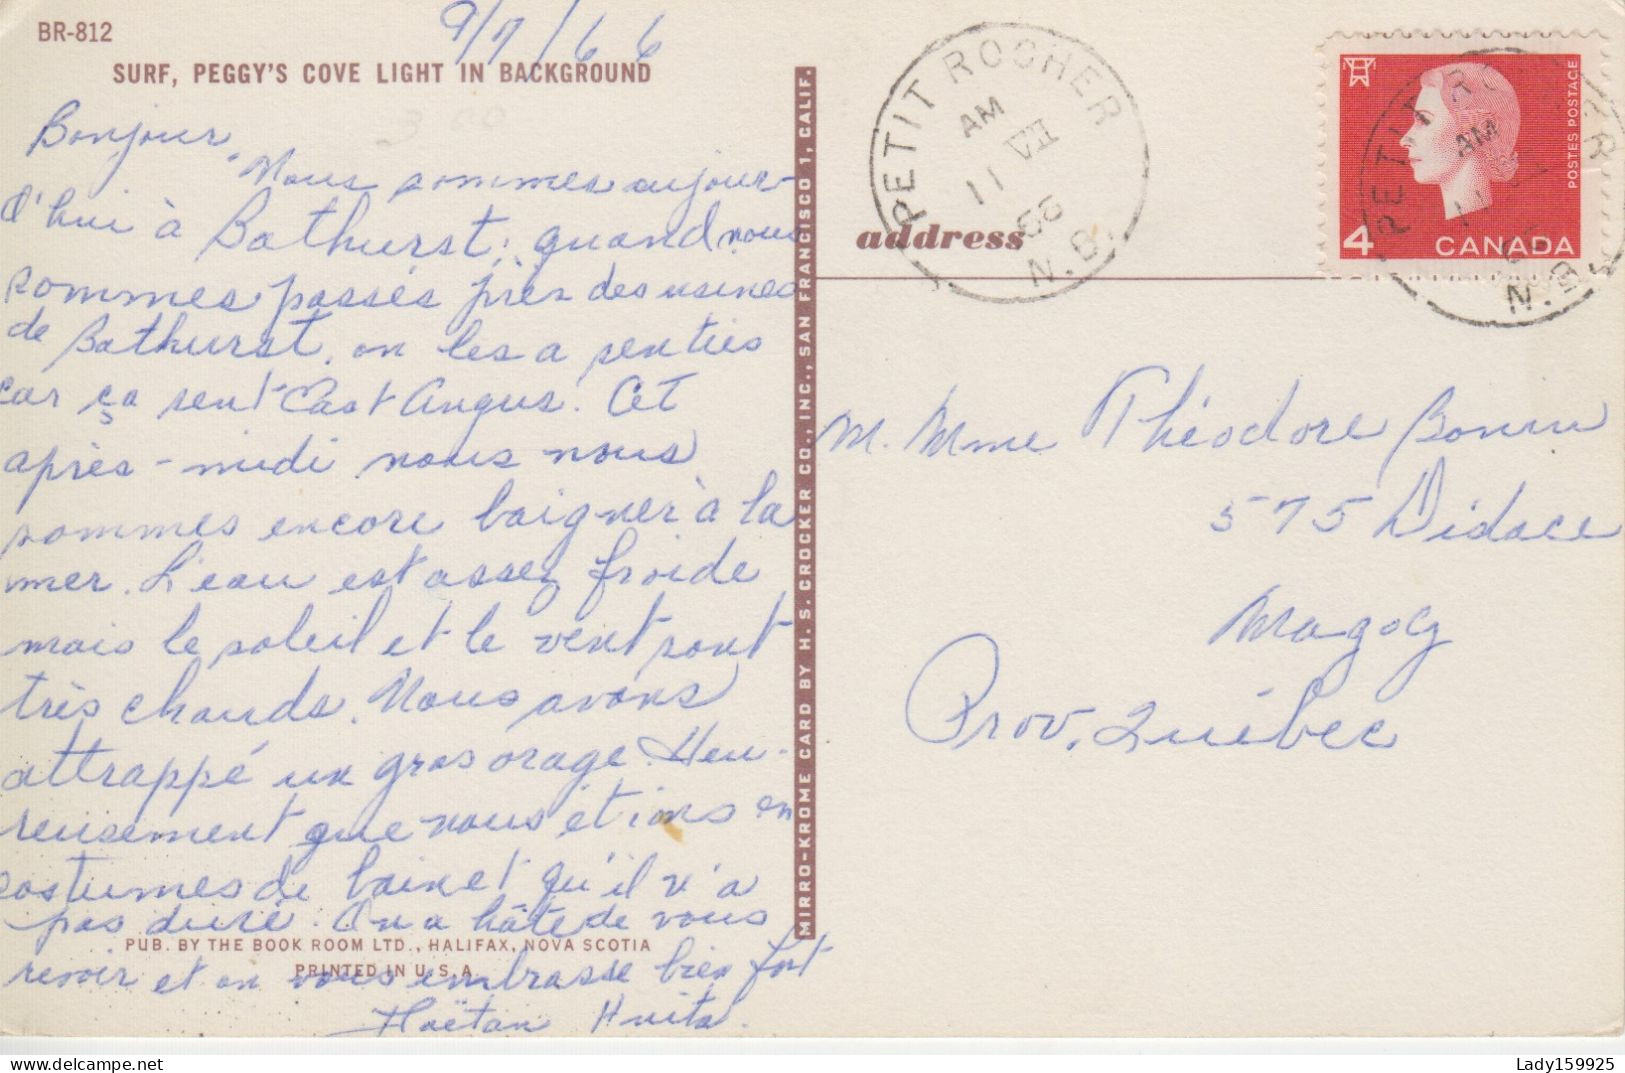 BR-812
9/7/66
SURF, PEGGY'S COVE LIGHT IN BACKGROUND
Bonjour,
Nous sommes aujour-
d'hui à Bathurst; quand nous
sommes passés près des usines
de Bathurst, on les a senties
car ça sent East Angus. Cet
après-midi nous nous
sommes encore baigner à la
mer. L'eau est assez froide
mais le soleil et le vent sont
très chauds. Nous avons
attrappé un gros orage. Heu-
reusement que nous étions en
costumes de bain et qu'il n'a
pas duré. On a hâte de vous
revoir et on vous embrasse bien fort
PUB. BY THE BOOK ROOM LTD., HALIFAX, NOVA SCOTIA
PRINTED IN U.S.A.
MIRRO-KROME CARD BY H. S. CROCKER CO., INC., SAN FRANCISCO 1, CALIF.
PETIT ROCHER
AM
11 VII
66
N.B.
address
POSTES POSTAGE
4 CANADA
PETIT ROCHER
AM
N.B.
M. Mme Théodore Bonin
575 Didace
Magog
Prov. Québec
Lady159925